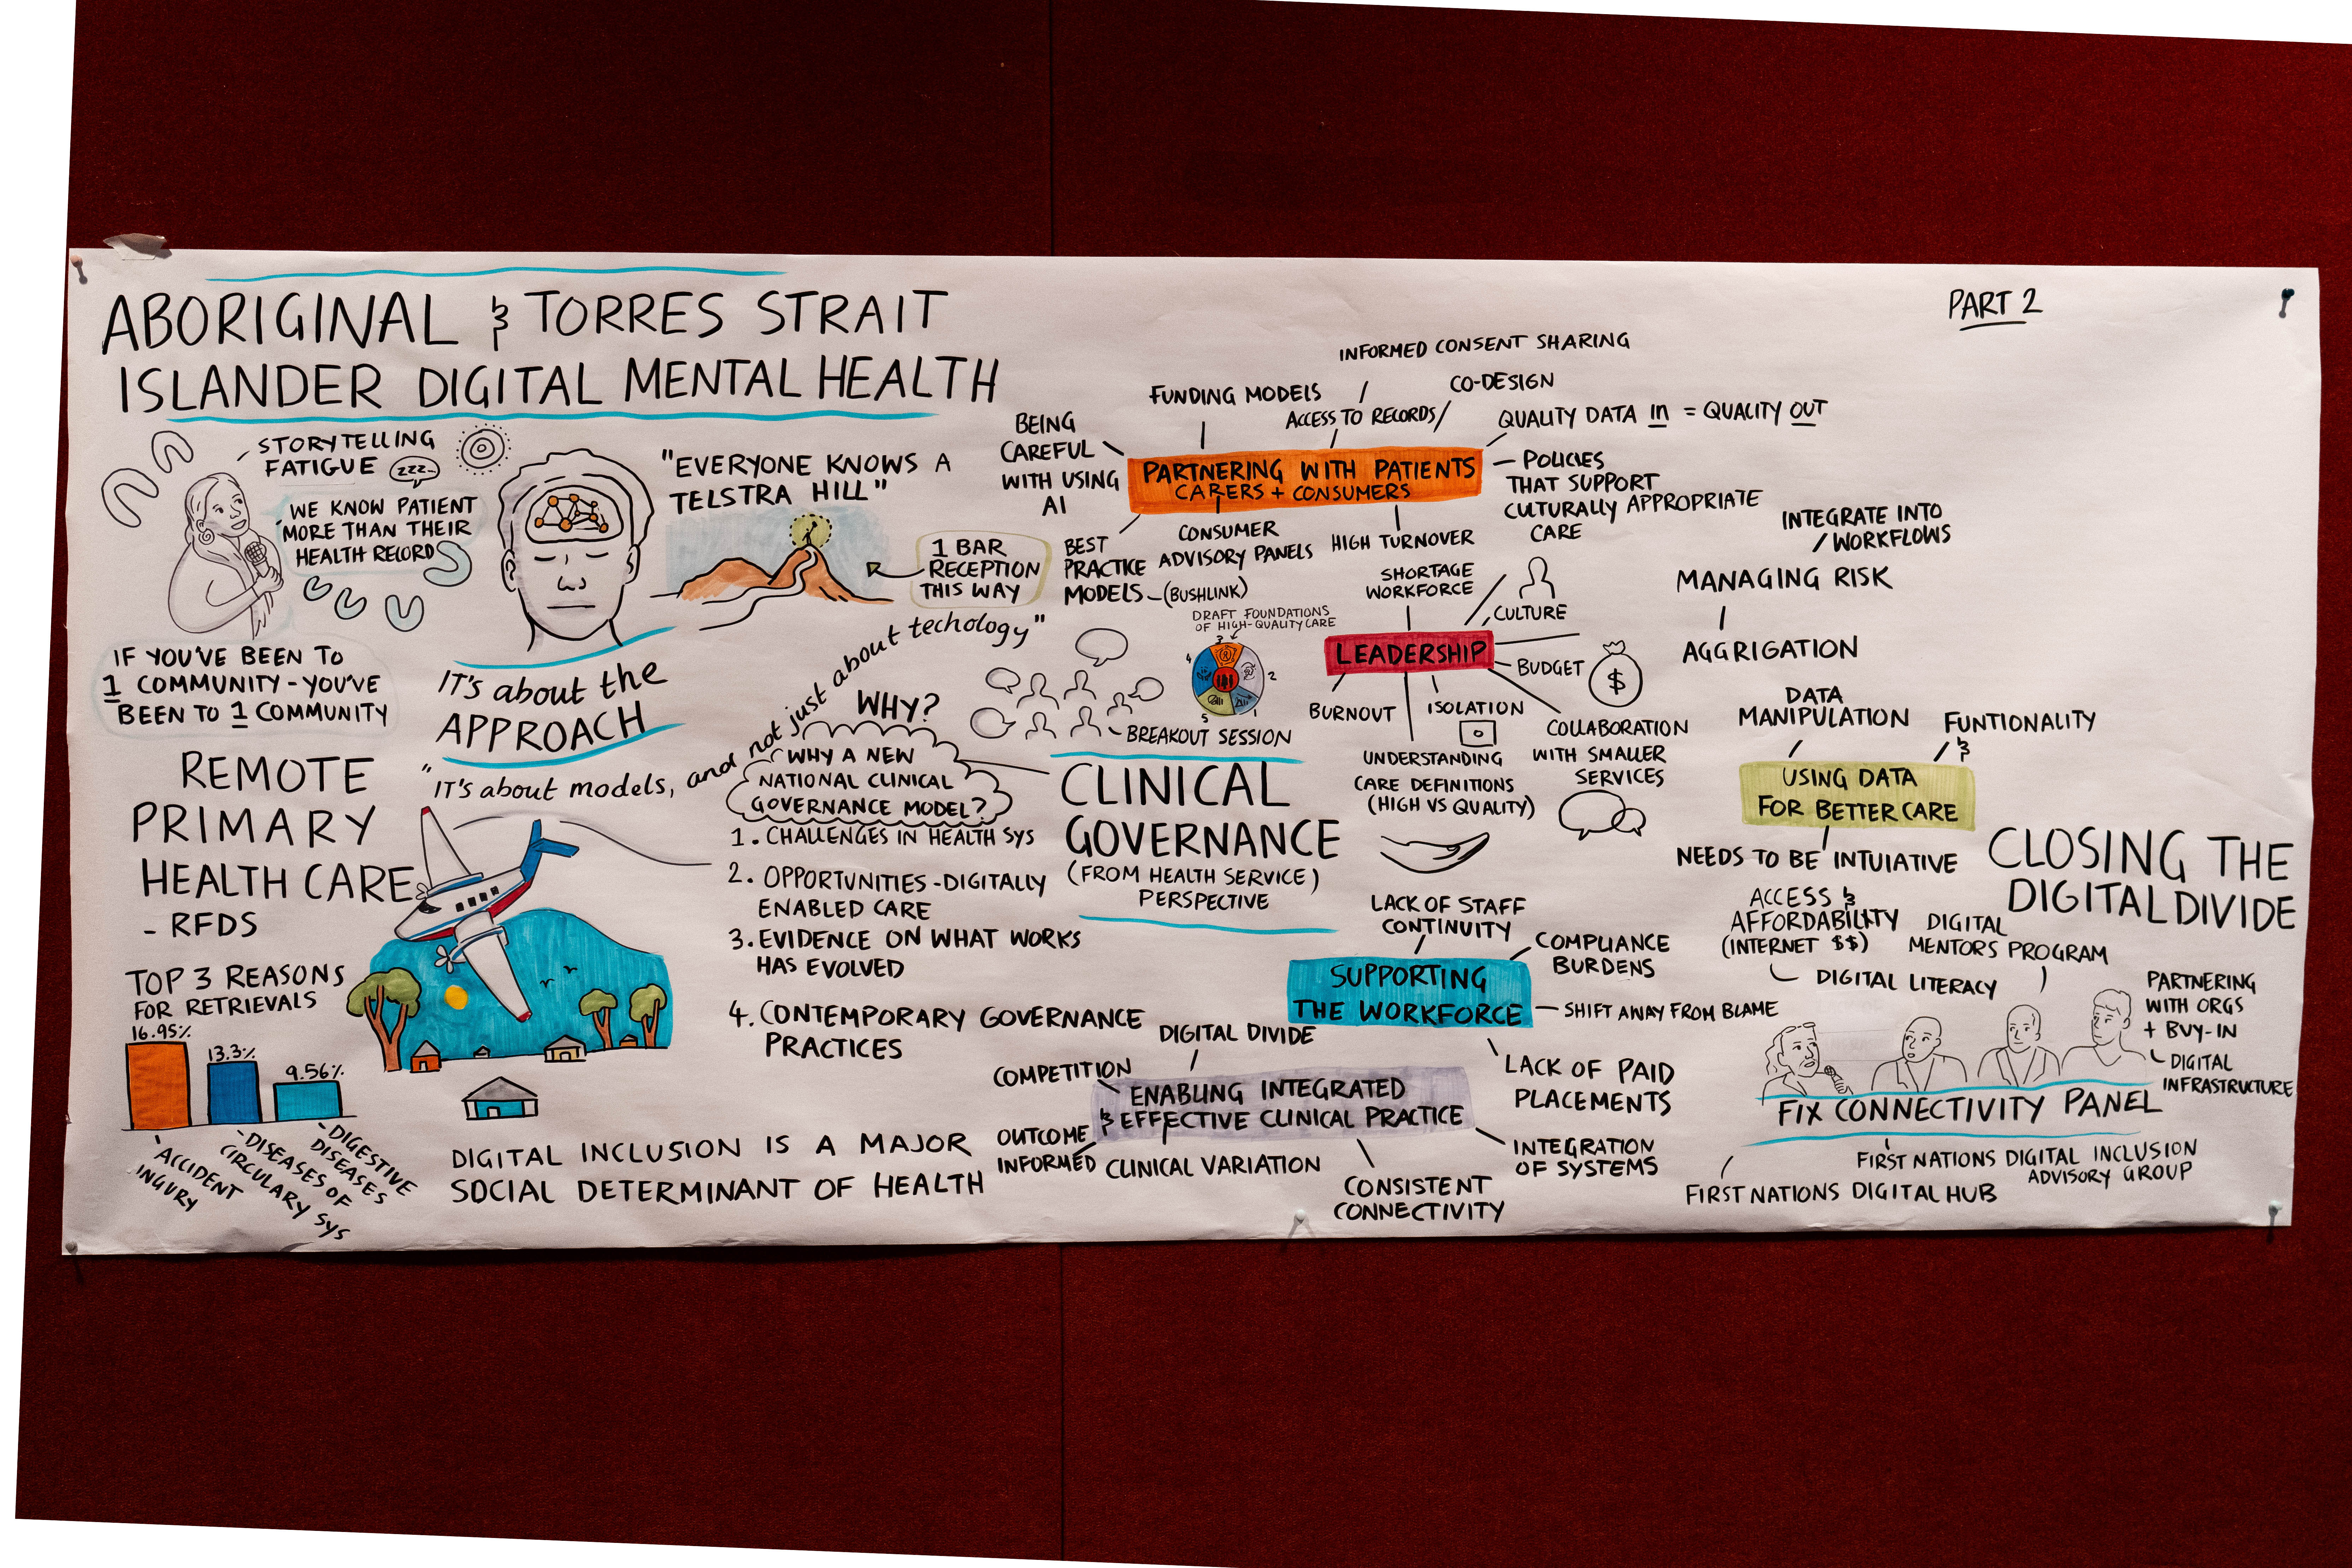 PART 2
ABORIGINAL & TORRES STRAIT
ISLANDER DIGITAL MENTAL HEALTH
STORYTELLING
FATIGUE
ZZZ
WE KNOW PATIENT
MORE THAN THEIR
HEALTH RECORD
IF YOU'VE BEEN TO
1 COMMUNITY - YOU'VE
BEEN TO 1 COMMUNITY
"EVERYONE KNOWS A
TELSTRA HILL"
1 BAR
RECEPTION
THIS WAY
IT'S about the
APPROACH
"IT'S about models, and not just about techology"
REMOTE
PRIMARY
HEALTH CARE
- RFDS
TOP 3 REASONS
FOR RETRIEVALS
16.95%
13.3%
9.56%
ACCIDENT
INGURY
- DISEASES OF
CIRCULARY SYS
- DIGESTIVE
DISEASES
DIGITAL INCLUSION IS A MAJOR
SOCIAL DETERMINANT OF HEALTH
WHY?
WHY A NEW
NATIONAL CLINICAL
GOVERNANCE MODEL?
1. CHALLENGES IN HEALTH SYS
2. OPPORTUNITIES - DIGITALLY
ENABLED CARE
3. EVIDENCE ON WHAT WORKS
HAS EVOLVED
4. CONTEMPORARY GOVERNANCE
PRACTICES
CLINICAL
GOVERNANCE
(FROM HEALTH SERVICE)
PERSPECTIVE
BREAKOUT SESSION
DRAFT FOUNDATIONS
OF HIGH-QUALITY CARE
3
4
2
5
1
PARTNERING WITH PATIENTS
CARERS + CONSUMERS
BEING
CAREFUL
WITH USING
AI
FUNDING MODELS
INFORMED CONSENT SHARING
ACCESS TO RECORDS
CO-DESIGN
QUALITY DATA In = QUALITY OUT
- POLICIES
THAT SUPPORT
CULTURALLY APPROPRIATE
CARE
BEST
PRACTICE
MODELS - (BUSHLINK)
CONSUMER
ADVISORY PANELS
HIGH TURNOVER
LEADERSHIP
SHORTAGE
WORKFORCE
CULTURE
BUDGET
$
COLLABORATION
WITH SMALLER
SERVICES
ISOLATION
UNDERSTANDING
CARE DEFINITIONS
(HIGH VS QUALITY)
BURNOUT
SUPPORTING
THE WORKFORCE
LACK OF STAFF
CONTINUITY
COMPLIANCE
BURDENS
- SHIFT AWAY FROM BLAME
LACK OF PAID
PLACEMENTS
ENABLING INTEGRATED
& EFFECTIVE CLINICAL PRACTICE
DIGITAL DIVIDE
COMPETITION
OUTCOME
INFORMED
CLINICAL VARIATION
CONSISTENT
CONNECTIVITY
INTEGRATION
OF SYSTEMS
INTEGRATE INTO
WORKFLOWS
MANAGING RISK
AGGRIGATION
DATA
MANIPULATION
FUNTIONALITY
&
USING DATA
FOR BETTER CARE
NEEDS TO BE INTUIATIVE
CLOSING THE
DIGITAL DIVIDE
ACCESS &
AFFORDABILITY
(INTERNET $$)
DIGITAL LITERACY
DIGITAL
MENTORS PROGRAM
PARTNERING
WITH ORGS
+ BUY-IN
DIGITAL
INFRASTRUCTURE
FIX CONNECTIVITY PANEL
FIRST NATIONS DIGITAL INCLUSION
ADVISORY GROUP
FIRST NATIONS DIGITAL HUB